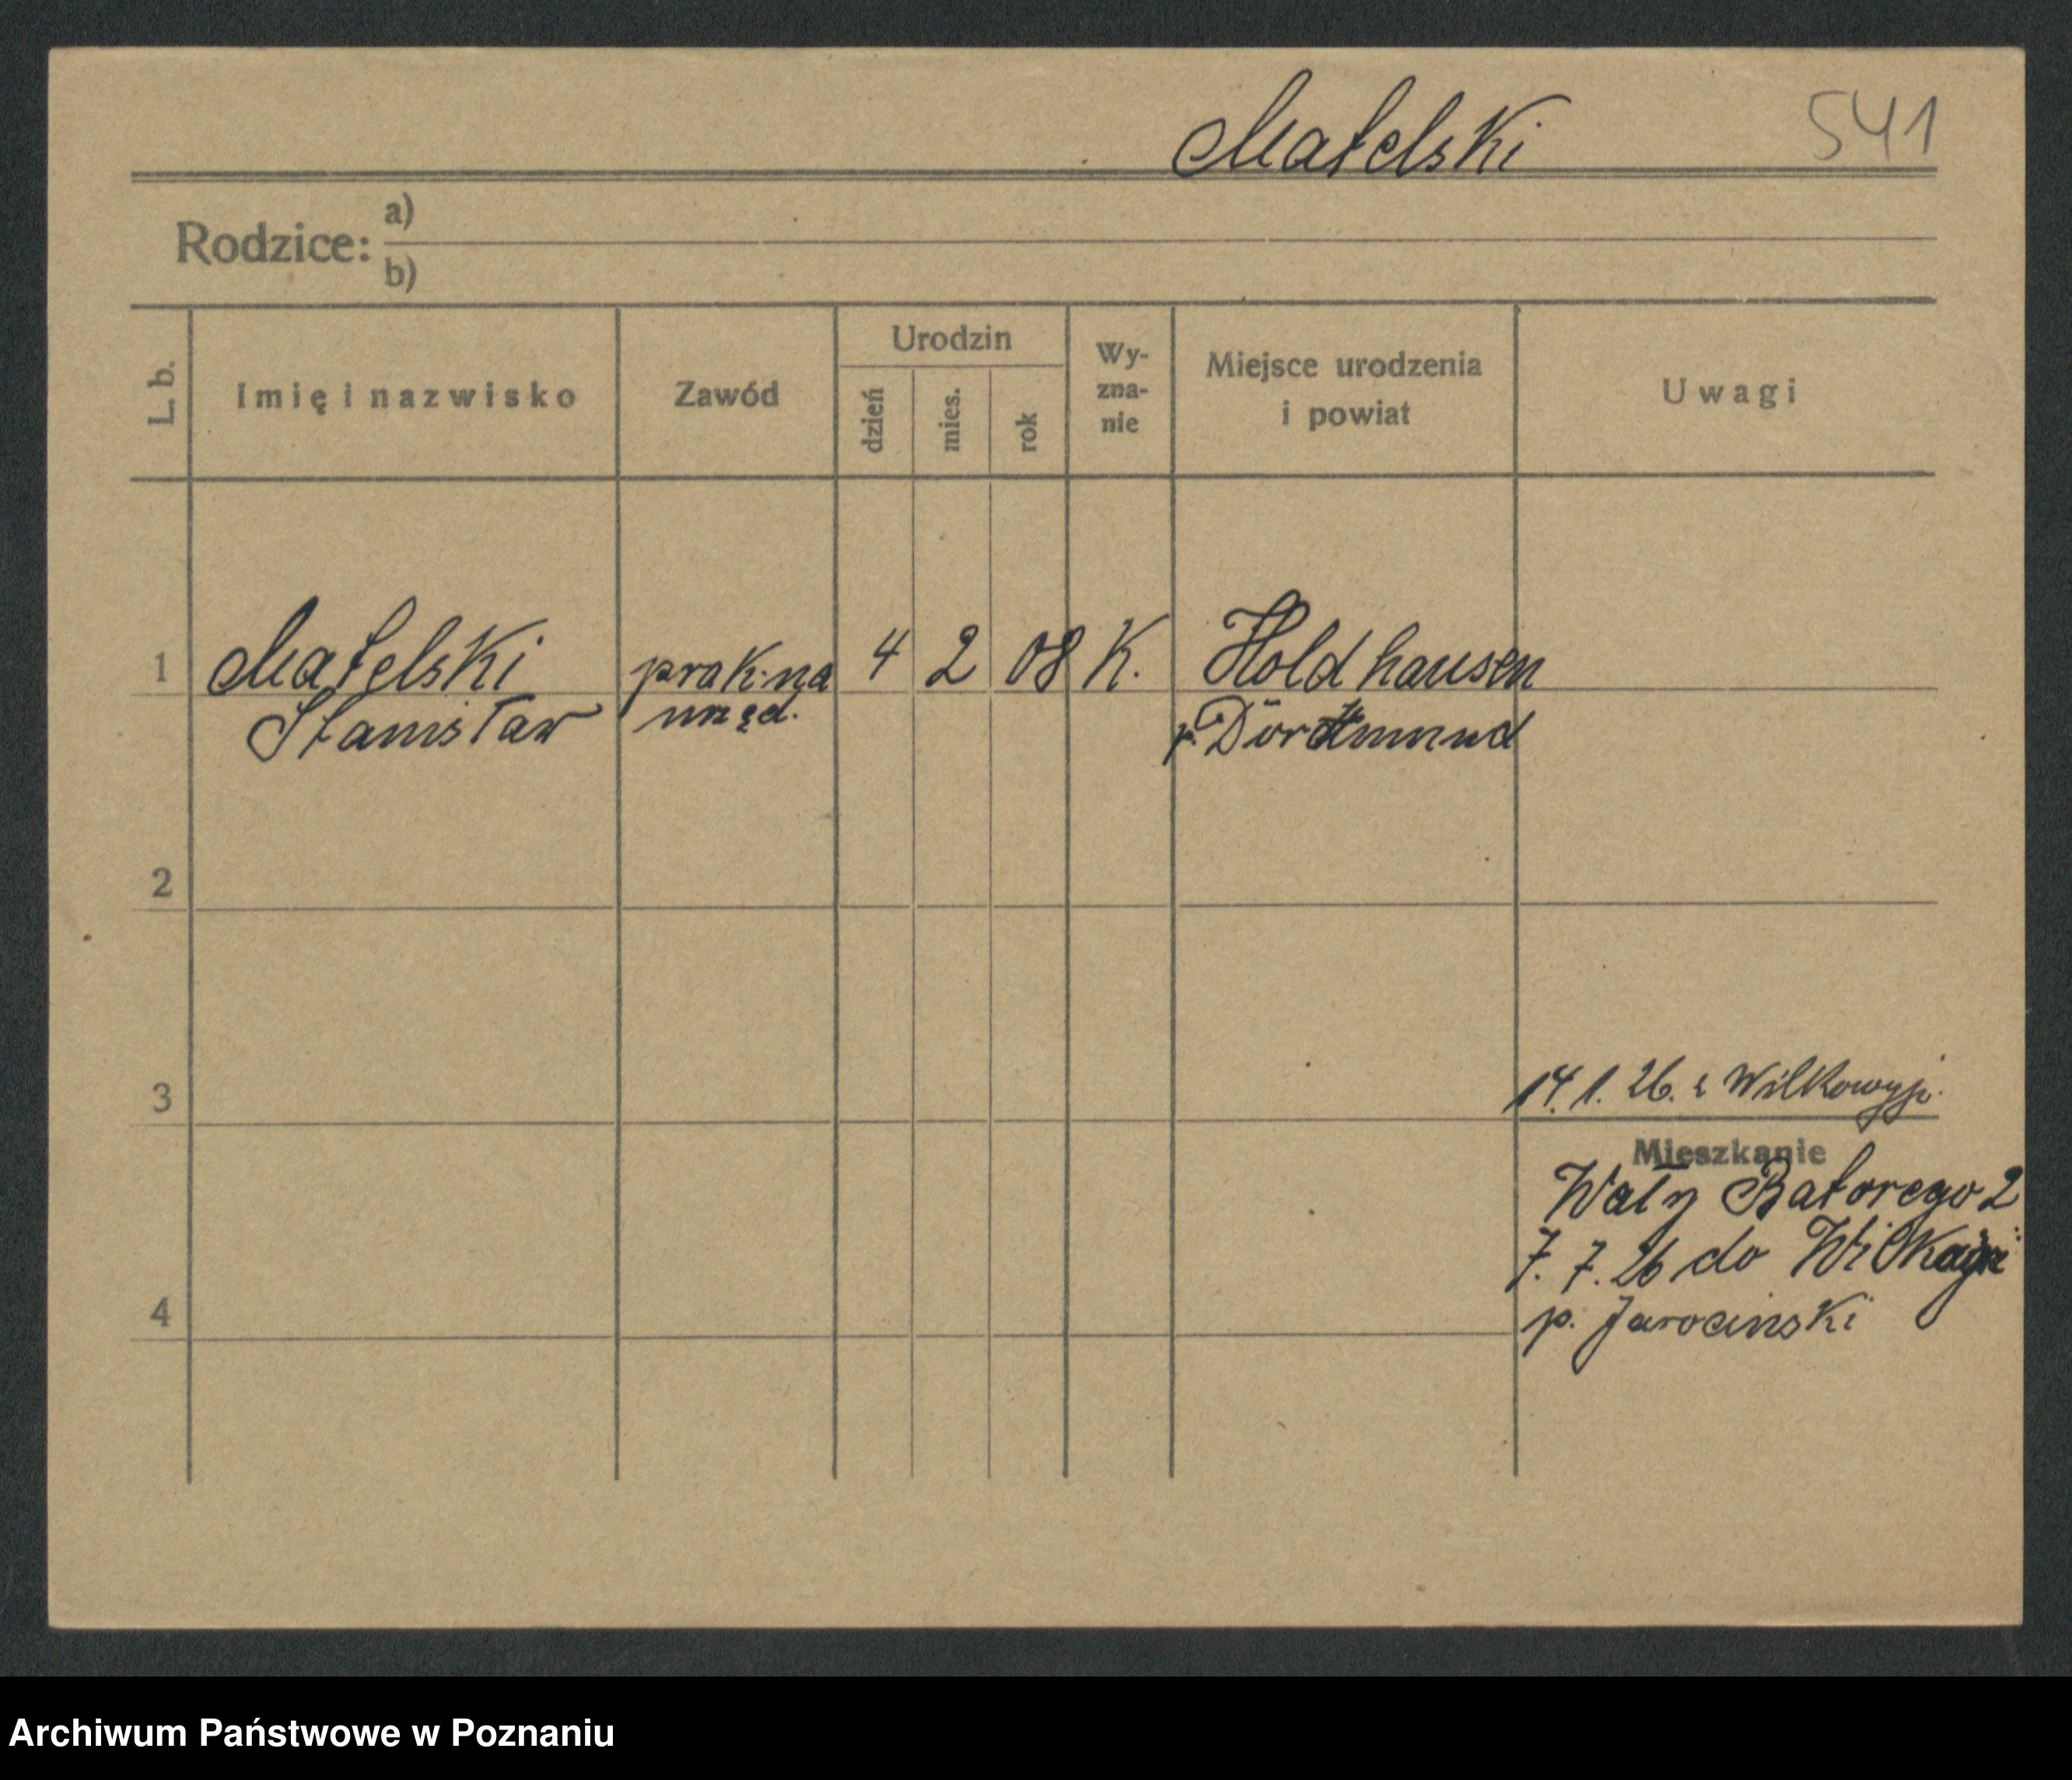 Matelski
541
Rodzice: a)
b)
L. b.
Imię i nazwisko
Zawód
Urodzin
dzień
mies.
rok
Wy-
zna-
nie
Miejsce urodzenia
i powiat
Uwagi
1 Matelski prak. na 4 2 08 K. Holdhausen
Stanisław urzęd. p. Dortmund
2
3
14. 1. 26. z Wilkowyj.
Mieszkanie
Wały Batorego 2
7. 7. 26 do
4
p. Jarocinski
Archiwum Państwowe w Poznaniu